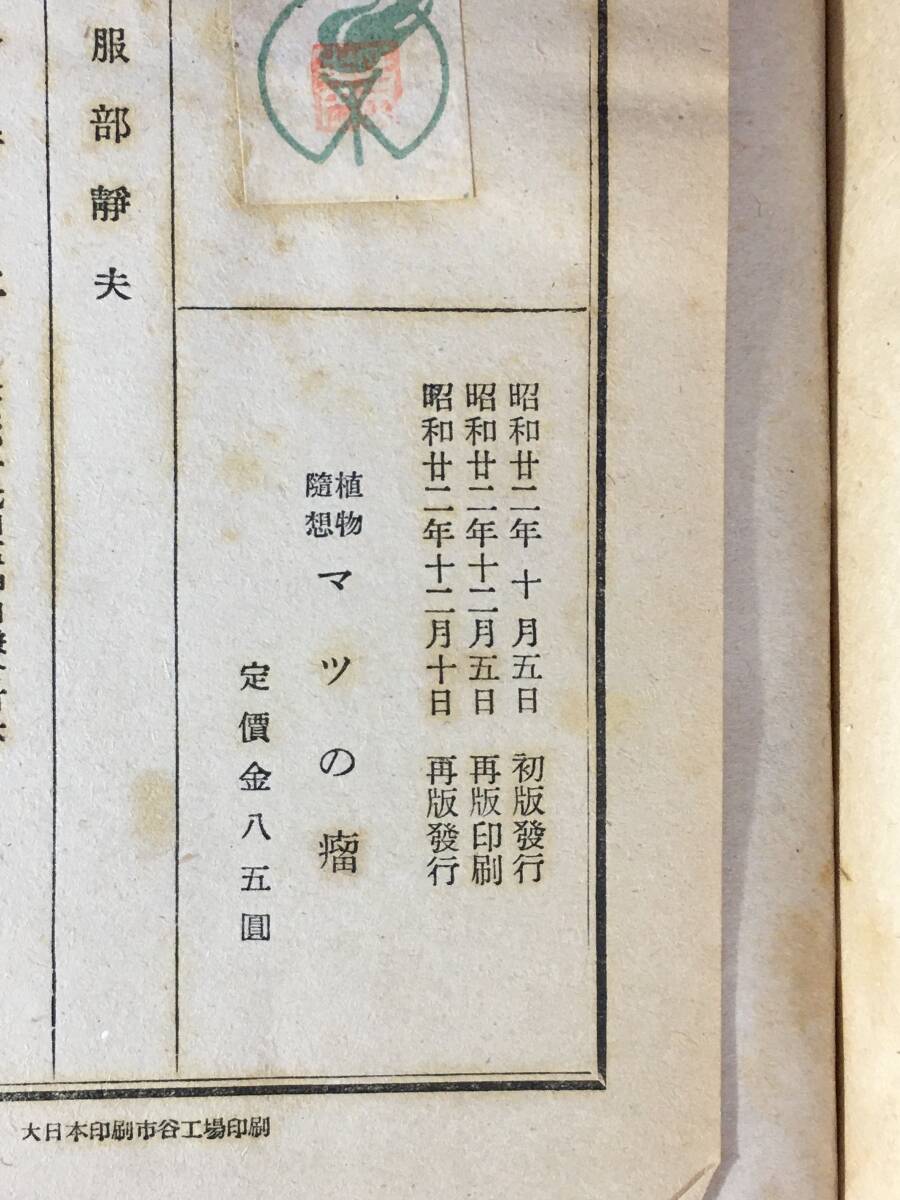 昭和廿二年十月五日 初版發行
昭和廿二年十二月五日 再版印刷
昭和廿二年十二月十日 再版發行
植物
隨想
マツの瘤
定價金八五圓
服部靜夫
大日本印刷市谷工場印刷